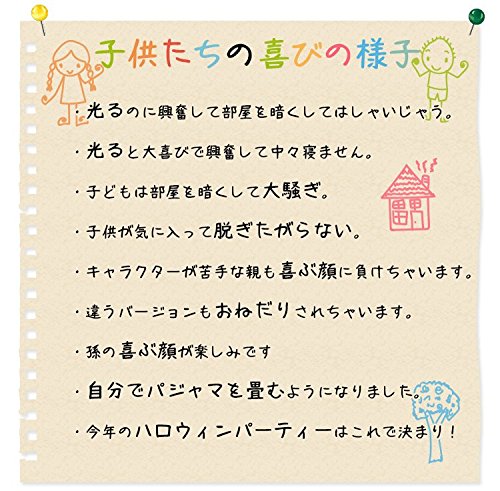 子供たちの喜びの様子
・光るのに興奮して部屋を暗くしてはしゃいじゃう。
・光ると大喜びで興奮して中々寝ません。
・子どもは部屋を暗くして大騒ぎ。
・子供が気に入って脱ぎたがらない。
・キャラクターが苦手な親も喜ぶ顔に負けちゃいます。
・違うバージョンもおねだりされちゃいます。
・孫の喜ぶ顔が楽しみです
・自分でパジャマを畳むようになりました。
・今年のハロウィンパーティーはこれで決まり！